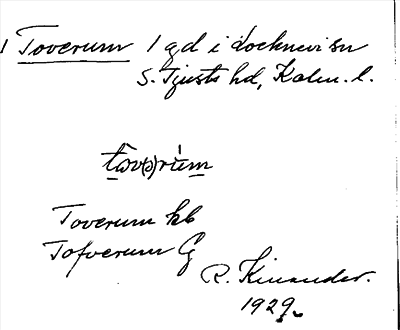 Toverum 1 gd i Locknevi sn
S. Tjusts hd, Kalm. l.
tòv(ə)rúm
Toverum kb
Tofverum G
R. Kinander.
1929.